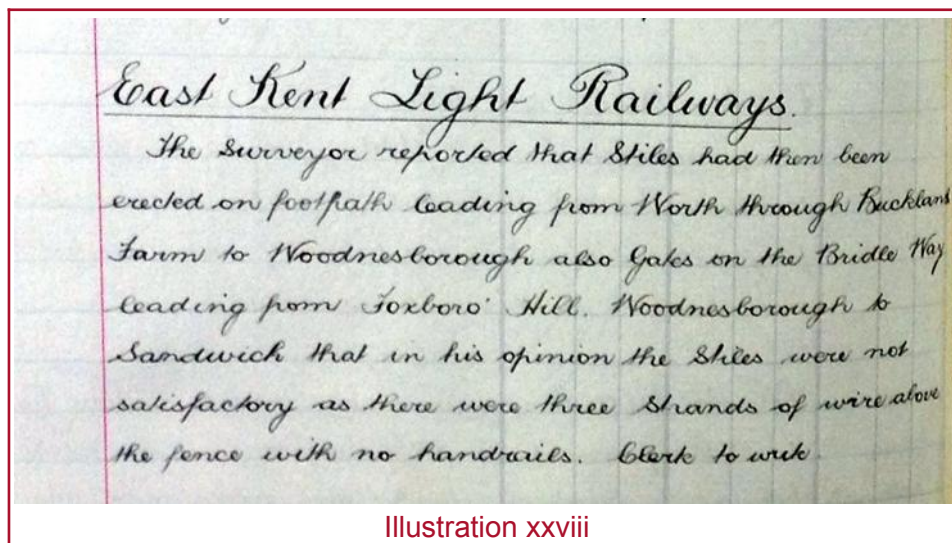 East Kent Light Railways.
The Surveyor reported that Stiles had then been
erected on footpath leading from Worth through Bucklans
Farm to Woodnesborough also Gates on the Bridle Way
leading from Foxboro' Hill. Woodnesborough to
Sandwich that in his opinion the Stiles were not
satisfactory as there were three strands of wire above
the fence with no handrails. Clerk to write.
Illustration xxviii